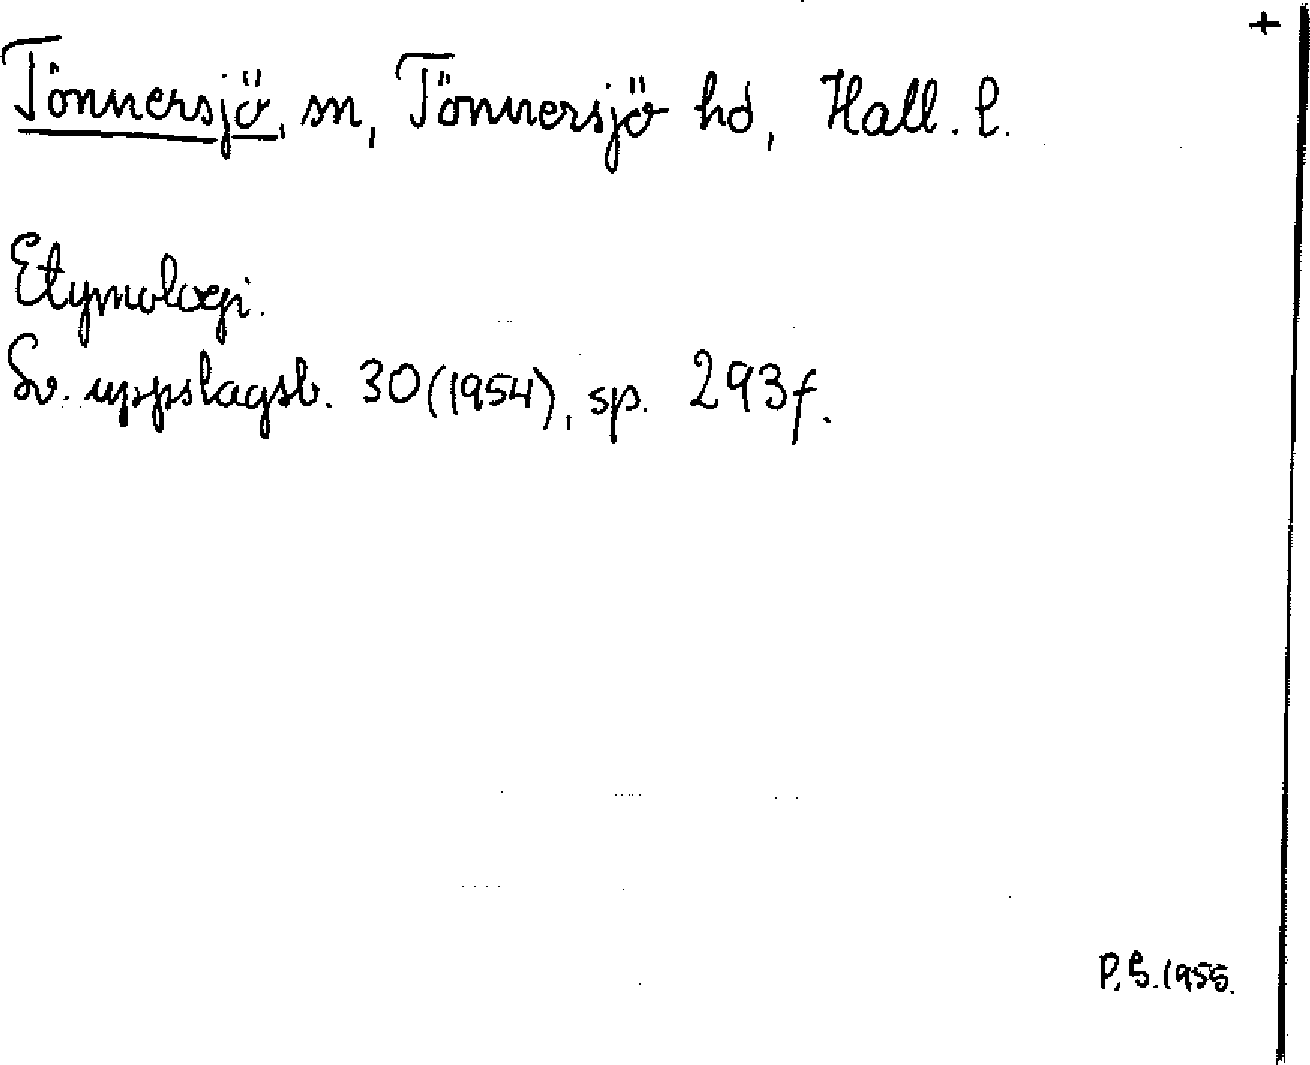 +
Tönnersjö, sn, Tönnersjö hd, Hall. l.
Etymologi.
Sv. uppslagsb. 30(1954), sp. 293f.
P.S. 1955.